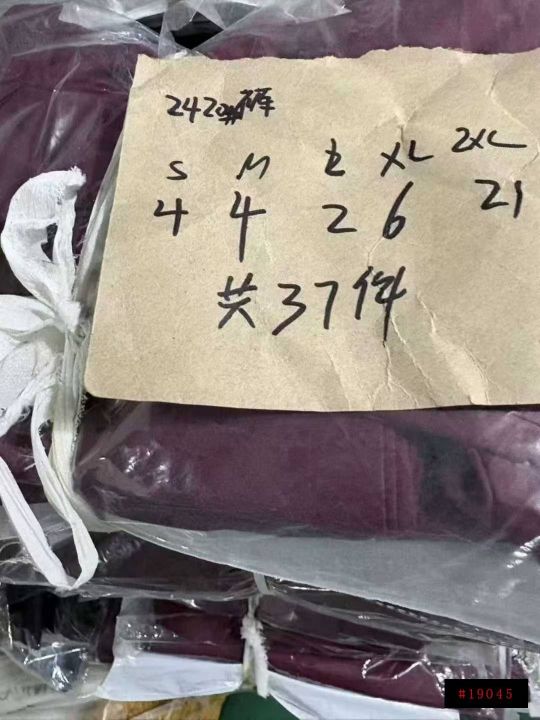 2420#裤
S M L XL 2XL
4 4 2 6 21
共37件
#19045